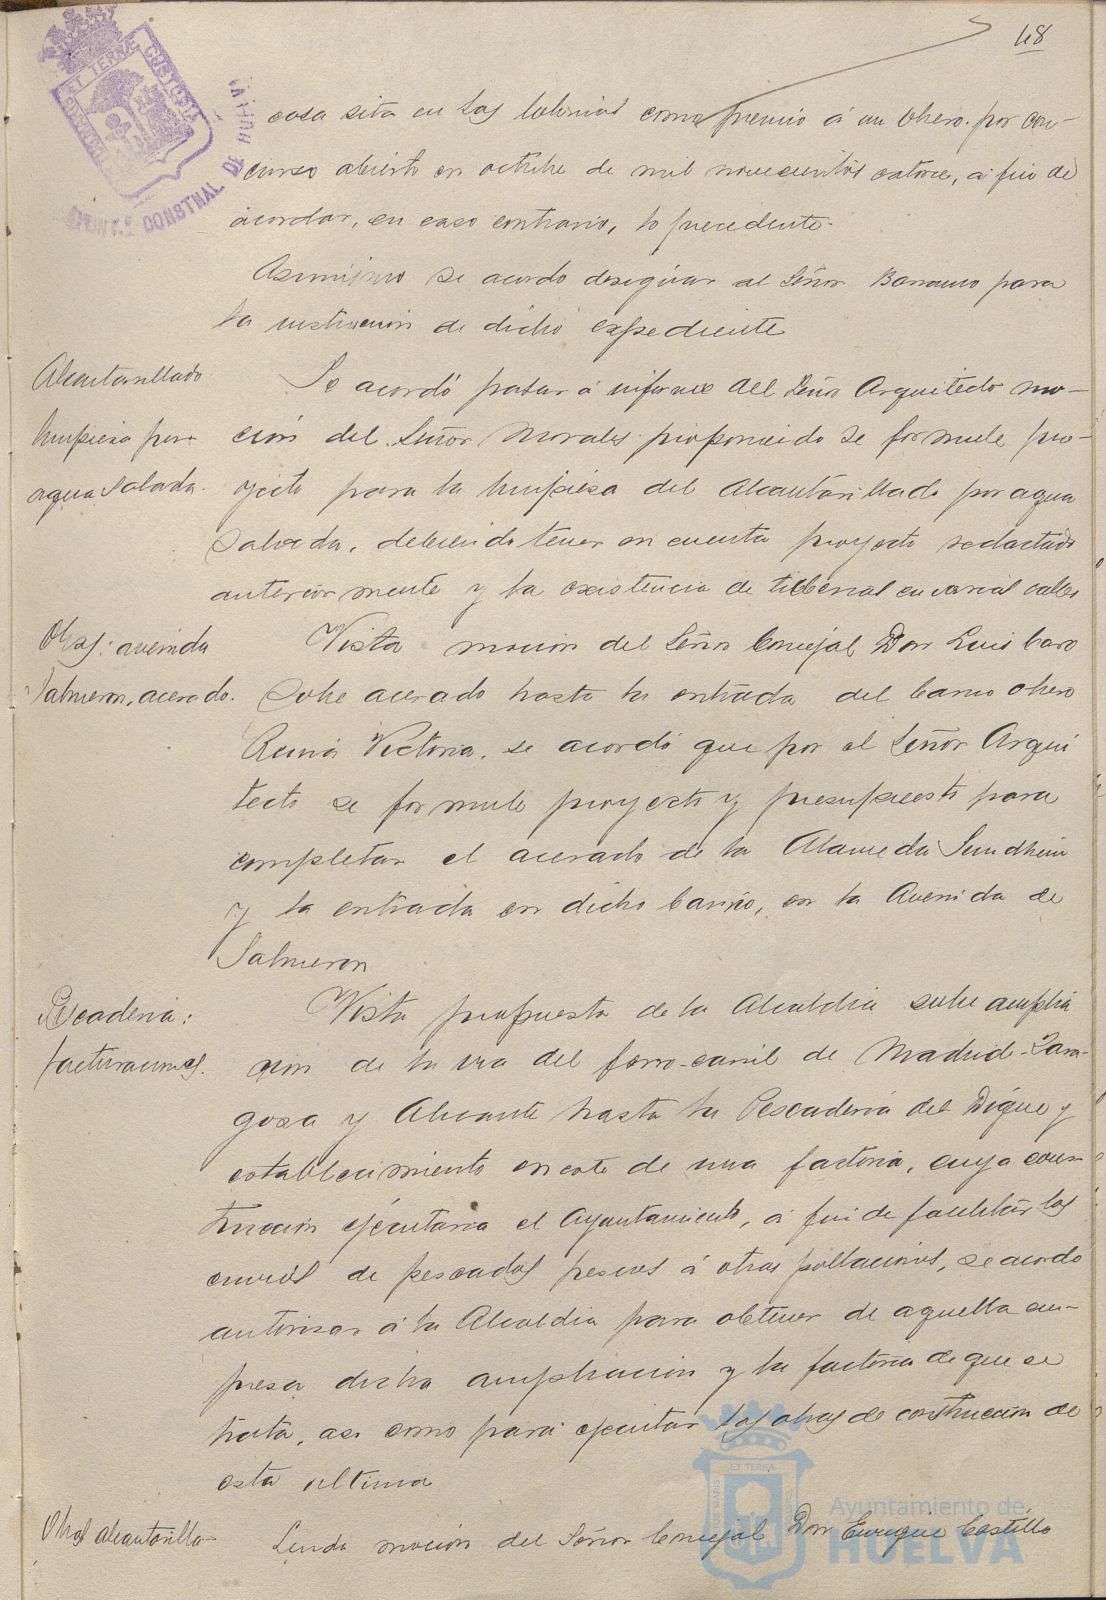 48
casa sita en Las Colonias como premio á un obrero por con-
curso abierto en octubre de mil novecientos catorce, á fin de
acordar, en caso contrario, lo procedente.
Asimismo se acordo designar al Señor Barranco para
la instrucción de dicho expediente
Alcantarillado
limpieza por
agua salada.
Se acordó pasar á informe del Señor Arquitecto mo-
ción del Señor Morales proponiendo se formule pro-
yecto para la limpieza del Alcantarillado por agua
salada, debiendo tener en cuenta proyecto redactado
anteriormente y la existencia de tuberias en varias calles
Obras: avenida
Salmeron, acerado.
Vista mocion del Señor Concejal Don Luis Caro
sobre acerado hasta la entrada del barrio obrero
Reina Victoria, se acordó que por el Señor Arqui
tecto se formule proyecto y presupuesto para
completar el acerado de la Alameda Sundheim
y la entrada en dicho barrio, en la Avenida de
Salmeron
Pescaderia:
facturaciones.
Vista propuesta de la Alcaldia sobre amplia
ción de la via del ferro-carril de Madrid-Zara-
goza y Alicante hasta la Pescaderia del Dique y
establecimiento en este de una factoria, cuya cons-
trucción ejecutaria el Ayuntamiento, á fin de facilitar los
envios de pescados frescos á otras poblaciones, se acordo
autorizar á la Alcaldia para obtener de aquella em-
presa dicha ampliación y la factoria de que se
trata, asi como para ejecutar las obras de construcción de
esta ultima
Obras alcantarilla-
Leida moción del Señor Concejal Don Enrique Castillo
Ayuntamiento de
HUELVA